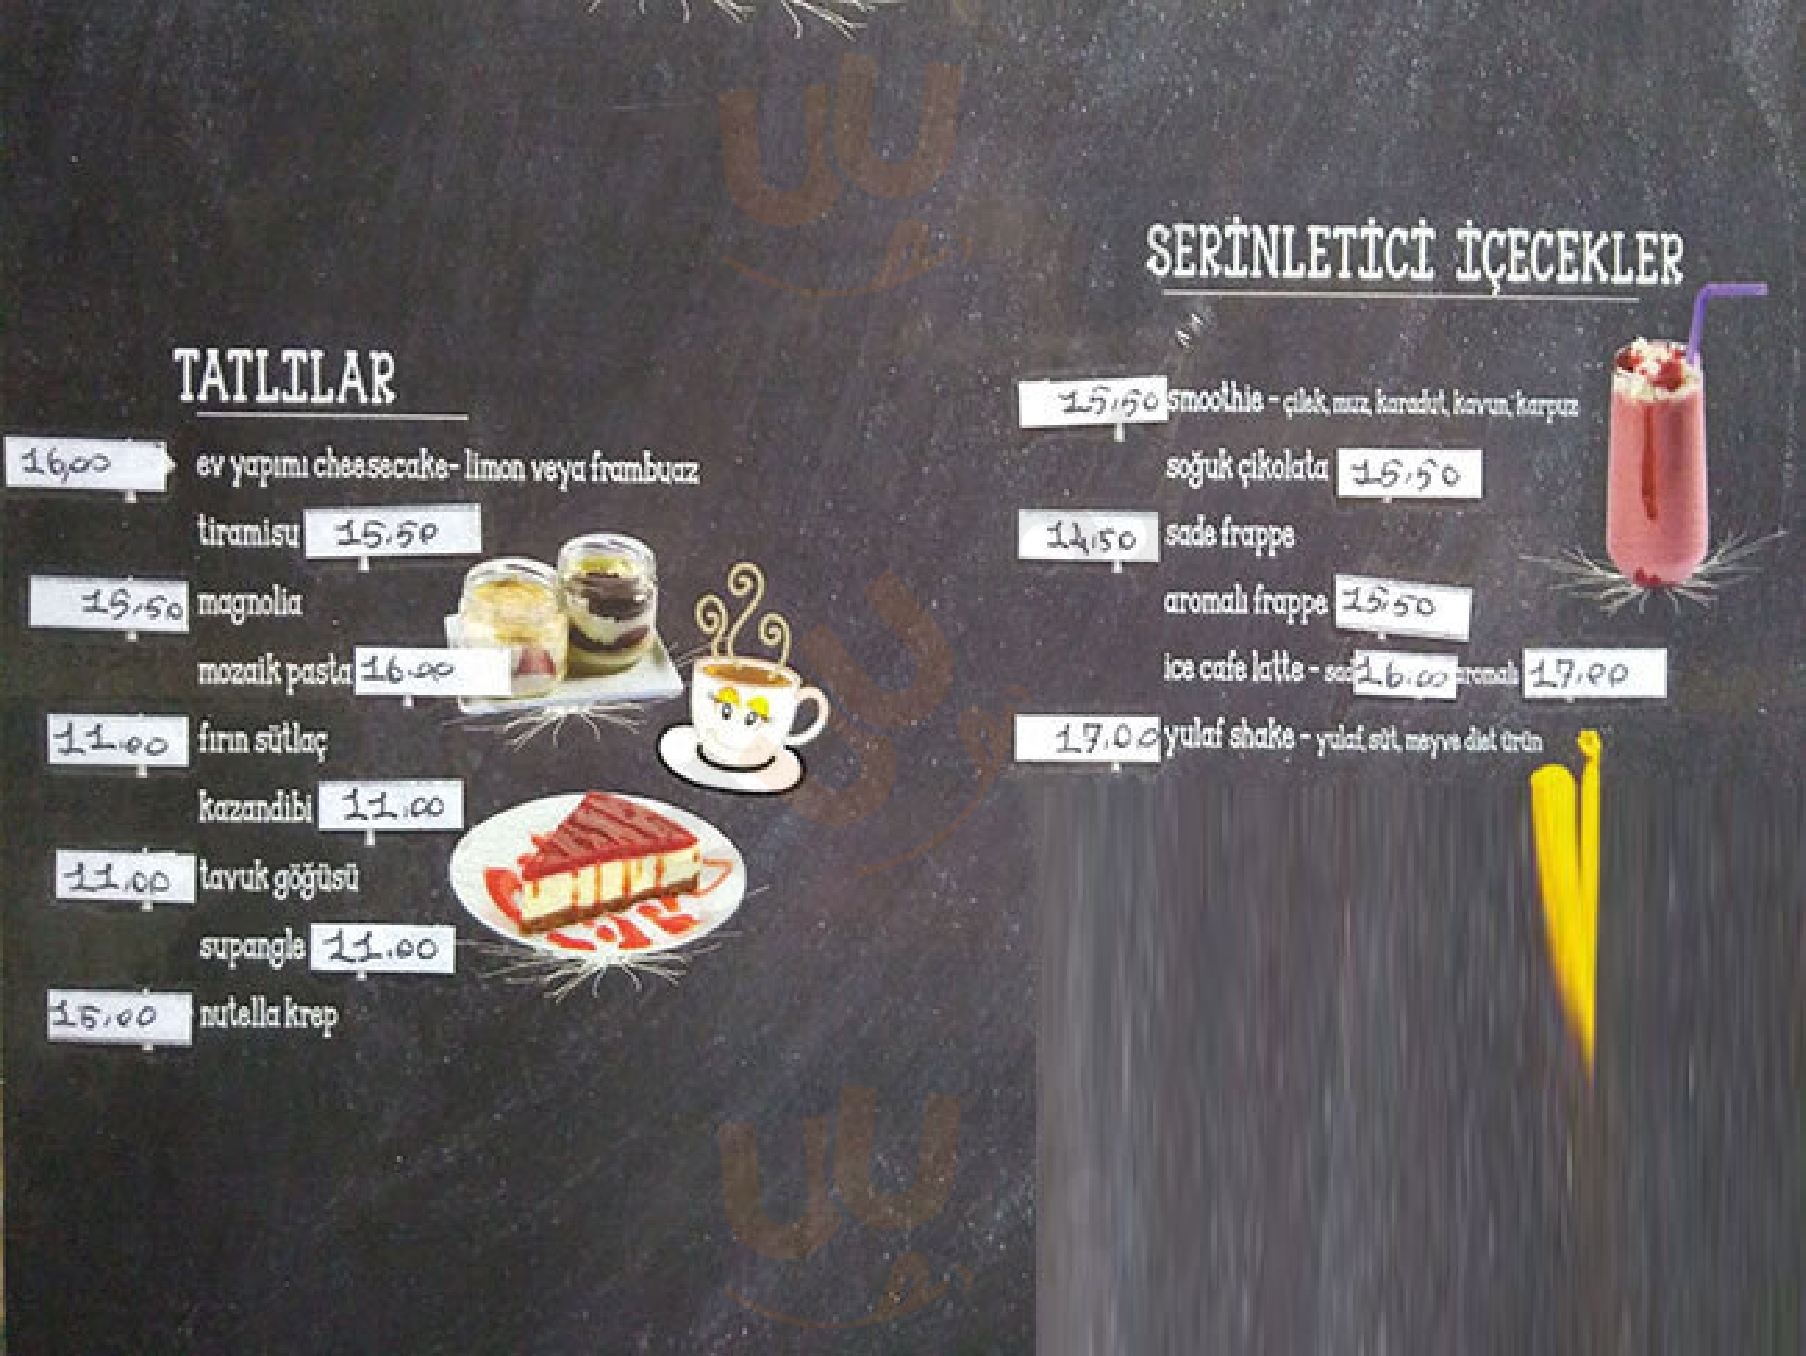 TATLILAR
16,00 ev yapımı cheesecake- limon veya frambuaz
tiramisu 15.50
15,50 magnolia
mozaik pasta 16.00
11.00 fırın sütlaç
kazandibi 11.00
11.00 tavuk göğüsü
supangle 11.00
15,00 nutella krep
SERİNLETİCİ İÇECEKLER
15,50 smoothie - çilek, muz, karadut, kavun, karpuz
soğuk çikolata 15,50
14,50 sade frappe
aromalı frappe 15.50
ice cafe latte - sad 16.00 aromalı 17.00
17.00 yulaf shake - yulaf, süt, meyve diet ürün